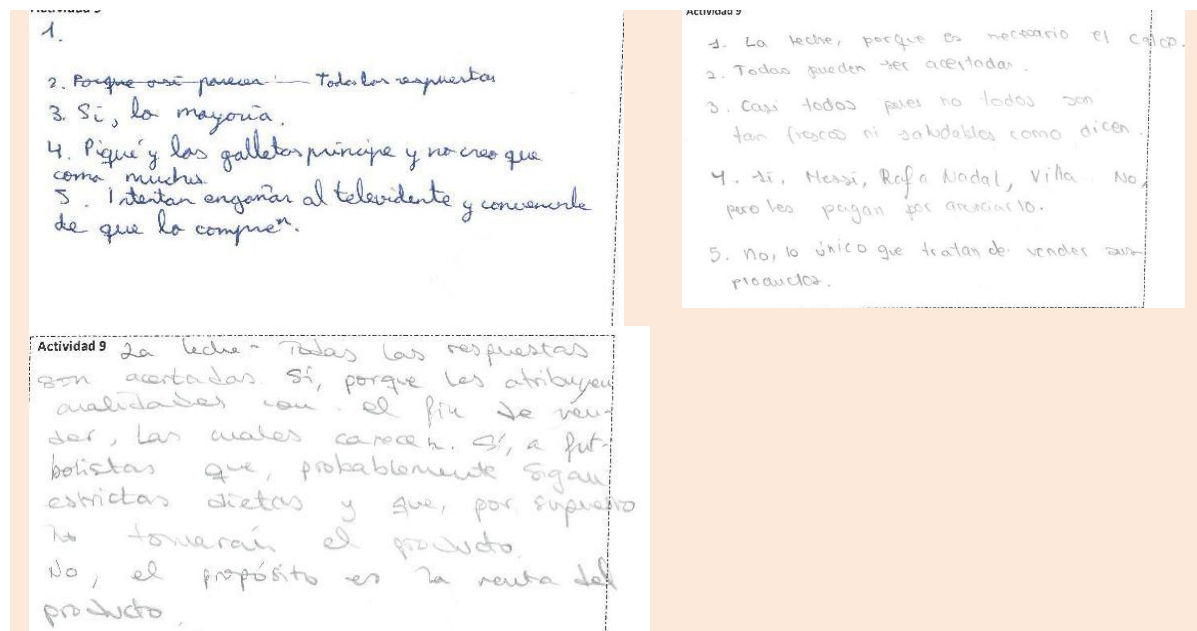 Actividad 9
1.
2. Porque así parecen Todas las respuestas
3. Sí, la mayoría.
4. Piqué y las galletas príncipe y no creo que
coma muchas
5. Intentan engañar al televidente y convencerle
de que lo compren.
Actividad 9
1. La leche, porque es necesario el calcio.
2. Todas pueden ser acertadas.
3. Casi todos pues no todos son
tan frescos ni saludables como dicen.
4. Sí, Messi, Rafa Nadal, Villa. No,
pero les pagan por anunciarlo.
5. No, lo único que tratan de vender sus
productos.
Actividad 9 La leche - Todas las respuestas
son acertadas. Sí, porque les atribuyen
cualidades con el fin de ven-
der, las cuales carecen. Sí, a fut-
bolistas que, probablemente sigan
estrictas dietas y que, por supuesto
no tomarán el producto.
No, el propósito es la venta del
producto.